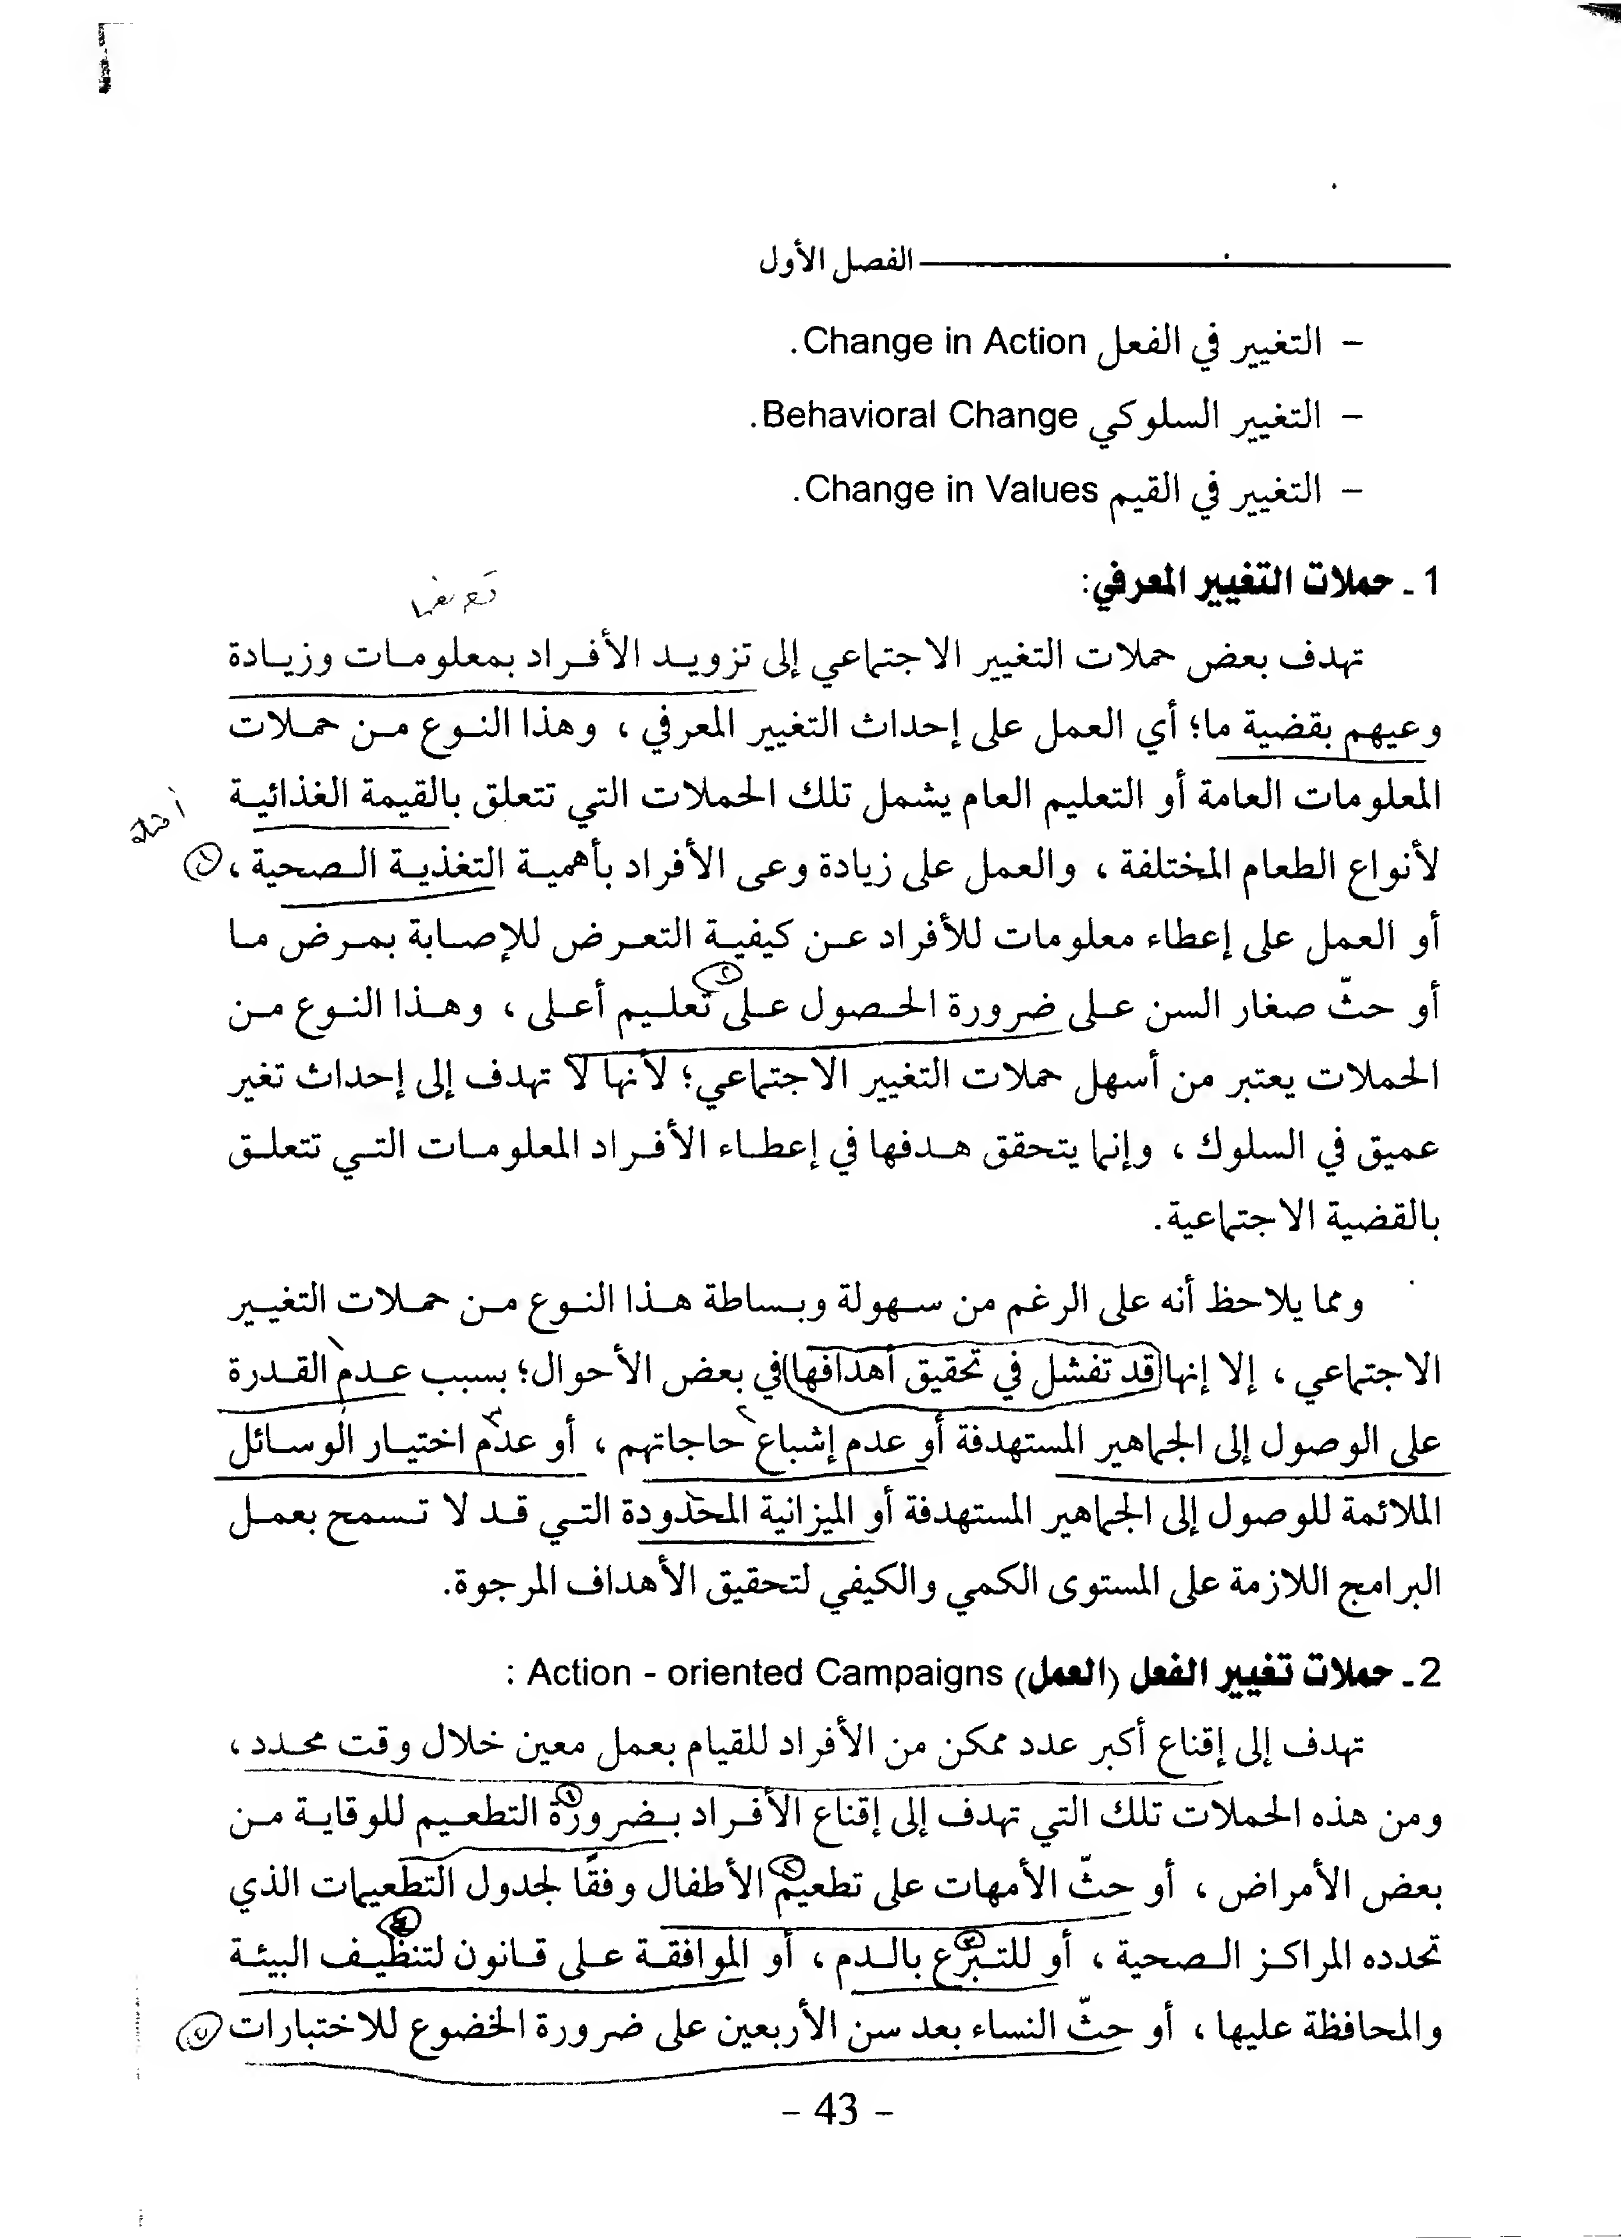 الفصل الأول
– التغيير في الفعل Change in Action.
– التغيير السلوكي Behavioral Change.
– التغيير في القيم Change in Values.
1 ـ حملات التغيير المعرفي:
تهدف بعض حملات التغيير الاجتماعي إلى تزويد الأفراد بمعلومات وزيادة
وعيهم بقضية ما؛ أي العمل على إحداث التغيير المعرفي ، وهذا النوع من حملات
المعلومات العامة أو التعليم العام يشمل تلك الحملات التي تتعلق بالقيمة الغذائية
أمثلة
لأنواع الطعام المختلفة ، والعمل على زيادة وعى الأفراد بأهمية التغذية الصحية ، ١
أو العمل على إعطاء معلومات للأفراد عن كيفية التعرض للإصابة بمرض ما
٢
أو حثّ صغار السن على ضرورة الحصول على تعليم أعلى ، وهذا النوع من
الحملات يعتبر من أسهل حملات التغيير الاجتماعي؛ لأنها لا تهدف إلى إحداث تغير
عميق في السلوك ، وإنما يتحقق هدفها في إعطاء الأفراد المعلومات التي تتعلق
بالقضية الاجتماعية.
ومما يلاحظ أنه على الرغم من سهولة وبساطة هذا النوع من حملات التغيير
الاجتماعي ، إلا إنها قد تفشل في تحقيق أهدافها في بعض الأحوال؛ بسبب عدم القدرة
على الوصول إلى الجماهير المستهدفة أو عدم إشباع حاجاتهم ، أو عدم اختيار الوسائل
الملائمة للوصول إلى الجماهير المستهدفة أو الميزانية المحدودة التي قد لا تسمح بعمل
البرامج اللازمة على المستوى الكمي والكيفي لتحقيق الأهداف المرجوة.
2 ـ حملات تغيير الفعل (العمل) Action - oriented Campaigns :
تهدف إلى إقناع أكبر عدد ممكن من الأفراد للقيام بعمل معين خلال وقت محدد ،
١
ومن هذه الحملات تلك التي تهدف إلى إقناع الأفراد بضرورة التطعيم للوقاية من
٢
بعض الأمراض ، أو حثّ الأمهات على تطعيم الأطفال وفقًا لجدول التطعيمات الذي
٣ ٤
تحدده المراكز الصحية ، أو للتبرع بالدم ، أو الموافقة على قانون لتنظيف البيئة
والمحافظة عليها ، أو حثّ النساء بعد سن الأربعين على ضرورة الخضوع للاختبارات ٥
– 43 –